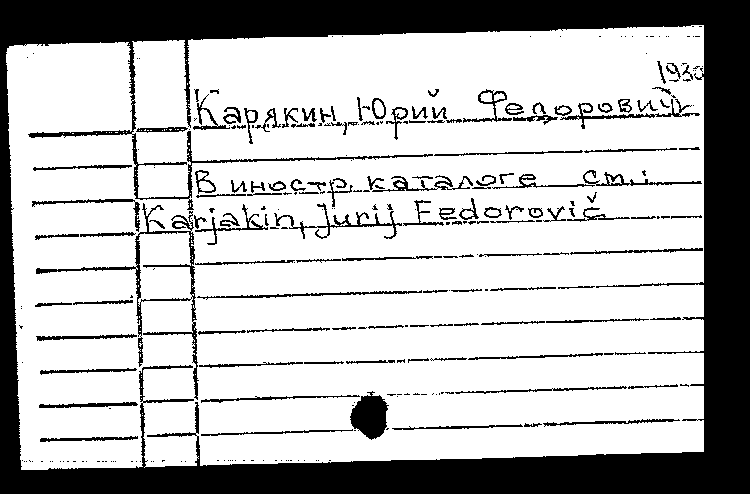 1930
Карякин, Юрий Федорович
В иностр. каталоге см.:
Karjakin, Jurij Fedorovič